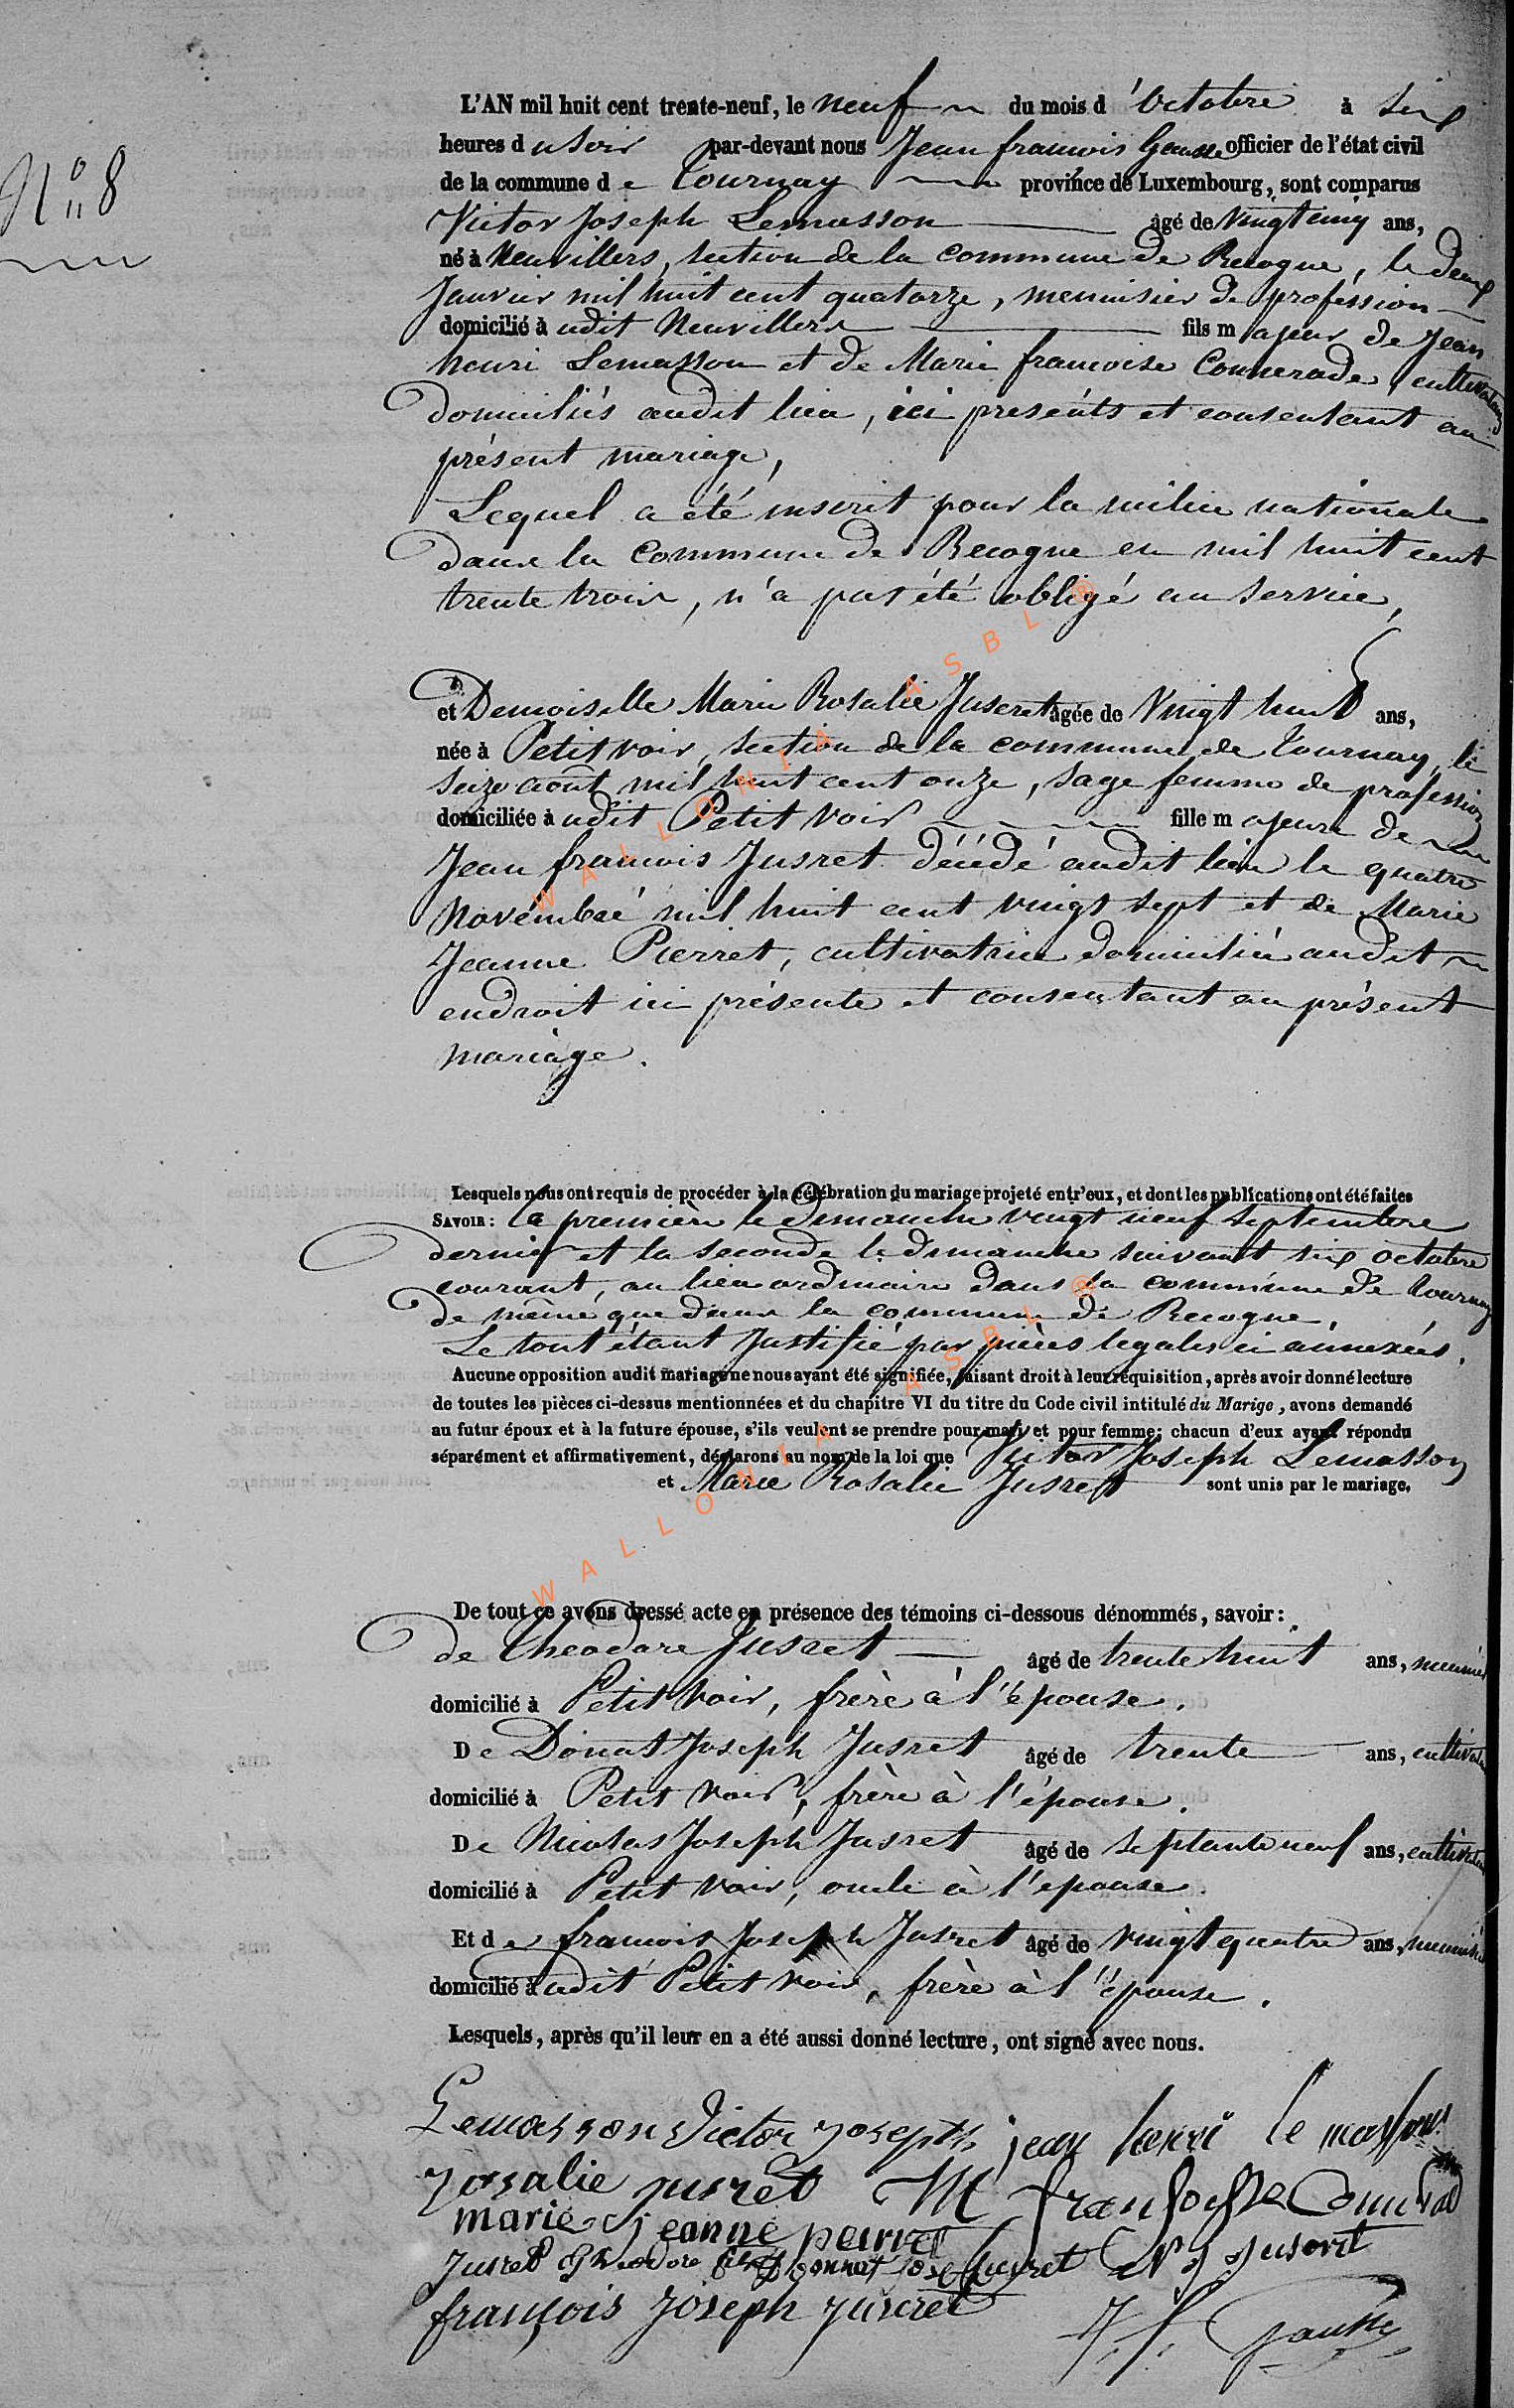 N° 8
L'AN mil huit cent trente-neuf, le neuf du mois d'Octobre à six
heures du soir par-devant nous Jean francois Gausse officier de l'état civil
de la commune de Tournay province de Luxembourg, sont comparus
Victor Joseph Lemasson âgé de vingt cinq ans,
né à Neuvillers, section de la commune de Recogne, le deux
Janvier mil huit cent quatorze, menuisier de profession
domicilié à udit Neuvillers fils majeur de Jean
henri Lemasson et de Marie francoise Connerade, cultivateurs
domiciliés audit lieu, ici présents et consentant au
présent mariage,
Lequel a été inscrit pour la milice nationale
dans la Commune de Recogne en mil huit cent
trente trois, n'a pas été obligé au service,
et Demoiselle Marie Rosalie Juseret âgée de Vingt huit ans,
née à Petitvoir, section de la commune de Tournay, le
seize août mil huit cent onze, sage femme de profession
domiciliée à udit Petit voir fille majeure de
Jean francois Jusret décédé audit lieu le quatre
Novembre mil huit cent vingt sept et de Marie
Jeanne Pierret, cultivatrice domiciliée audit
endroit ici présente et consentant au présent
mariage.
Lesquels nous ont requis de procéder à la célébration du mariage projeté entr'eux, et dont les publications ont été faites
SAVOIR: la première le Dimanche vingt neuf Septembre
dernier et la seconde le dimanche suivant six octobre
courant, au lieu ordinaire dans la commune de Tournay
de même que dans la commune de Recogne.
Le tout étant Justifié par pièces legales ci annexées.
Aucune opposition audit mariage ne nous ayant été signifiée, faisant droit à leur réquisition, après avoir donné lecture
de toutes les pièces ci-dessus mentionnées et du chapitre VI du titre du Code civil intitulé du Marige, avons demandé
au futur époux et à la future épouse, s'ils veulent se prendre pour mari et pour femme; chacun d'eux ayant répondu
séparément et affirmativement, déclarons au nom de la loi que Victor Joseph Lemasson
et Marie Rosalie Jusret sont unis par le mariage.
De tout ce avons dressé acte en présence des témoins ci-dessous dénommés, savoir:
de Théodore Jusret âgé de trente huit ans, meunier
domicilié à Petit Voir, frère à l'épouse.
De Donat Joseph Jusret âgé de trente ans, cultivateur
domicilié à Petit Voir, frère à l'épouse.
De Nicolas Joseph Jusret âgé de septante neuf ans, cultivateur
domicilié à Petit Voir, oncle à l'épouse.
Et de francois Joseph Jusret âgé de vingt quatre ans, menuisier
domicilié à udit Petit Voir, frère à l'épouse.
Lesquels, après qu'il leur en a été aussi donné lecture, ont signé avec nous.
Lemasson Victor Joseph jean henri le masson
rosalie jusret M fransoisse Connerad
marie jeanne peirret
Jusret Théodore Donnat Josephjusret N J Jusoret
françois joseph juseret J. f. Gausse
WALLONIA ASBL ®
WALLONIA ASBL ®